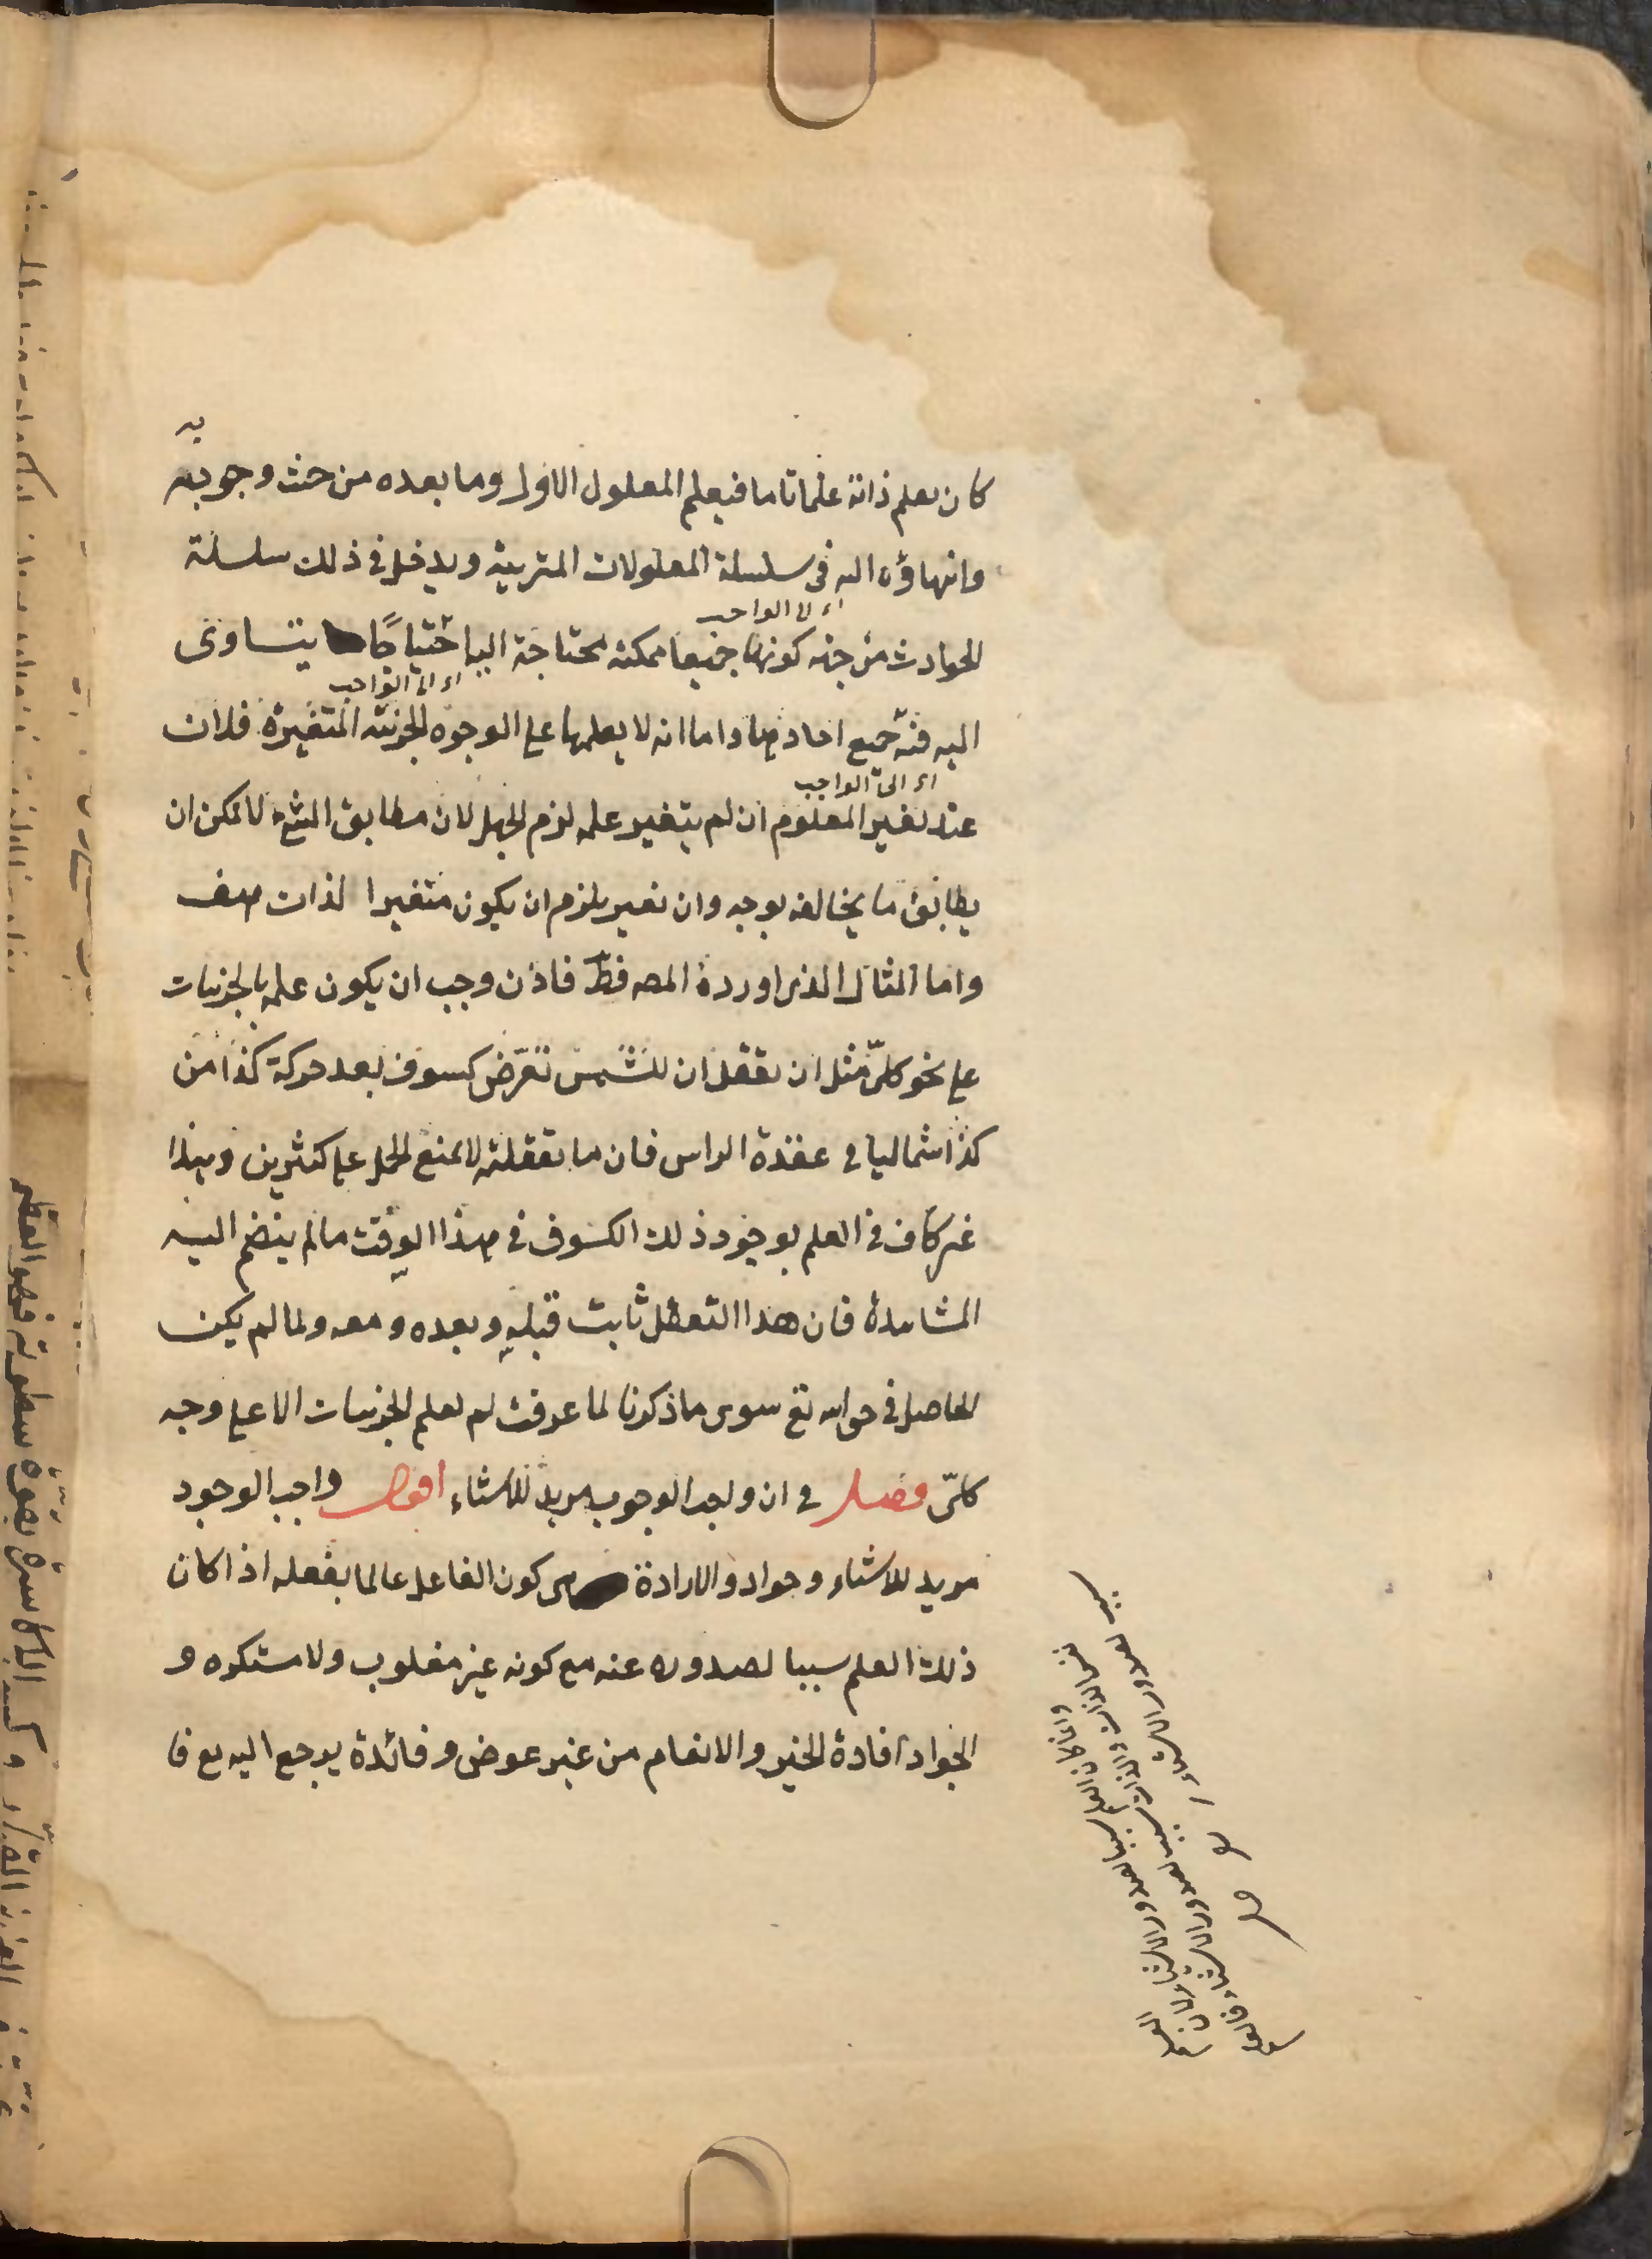 به
كان يعلم ذاته علما تاما فيعلم المعلول الاول وما بعده من حيث وجوبه
وانتهاؤه اليه فى سلسلة المعلولات المترتبة ويدخل فى ذلك سلسلة
اى الى الواجب
الحوادث من جهة كونها جميعا ممكنة محتاجة اليه احتياجا يتساوى
اى الى الواجب
اليه فيه جميع احادها واما انه لا يعلمها على الوجوه الجزئية المتغيرة فلان
اى الى الواجب
عند تغير المعلوم ان لم يتغير علمه لزم الجهل لان مطابق الشئ لا يمكن ان
يطابق ما يخالفه بوجه وان تغير يلزم ان يكون متغيرا لذات هف
واما المثال الذى اورده المصـ فظ فاذن وجب ان يكون علمه بالجزئيات
على نحو كلى مثل ان تعقل ان للشمس تعرض كسوف بعد حركة كذا من
كذا شماليا فى عقدة الراس فان ما تعقلته لا يمنع الحمل على كثيرين وهذا
غير كاف فى العلم بوجود ذلك الكسوف فى هذا الوقت ما لم ينضم اليه
المشاهدة فان هذا التعقل ثابت قبله وبعده ومعه ولما لم يكن
الحاصل فى حواسه تع سوى ما ذكرنا لما عرفت لم يعلم الجزئيات الا على وجه
كلى فصل فى ان واجب الوجوب مريد للاشياء اقول واجب الوجود
مريد للاشياء وجواد والارادة هى كون الفاعل عالما بفعله اذا كان
ذلك العلم سببا لصدوره عنه مع كونه غير مغلوب ولا مستكره و
الجواد افادة الخير والانعام من غير عوض وفائدة يرجع اليه يع فا
وانما كان العلم سببا لصدور الاشياء لان العلم
نفس الذات والذات سبب لصدور الاشياء فالعلم
سبب لصدور الاشياء